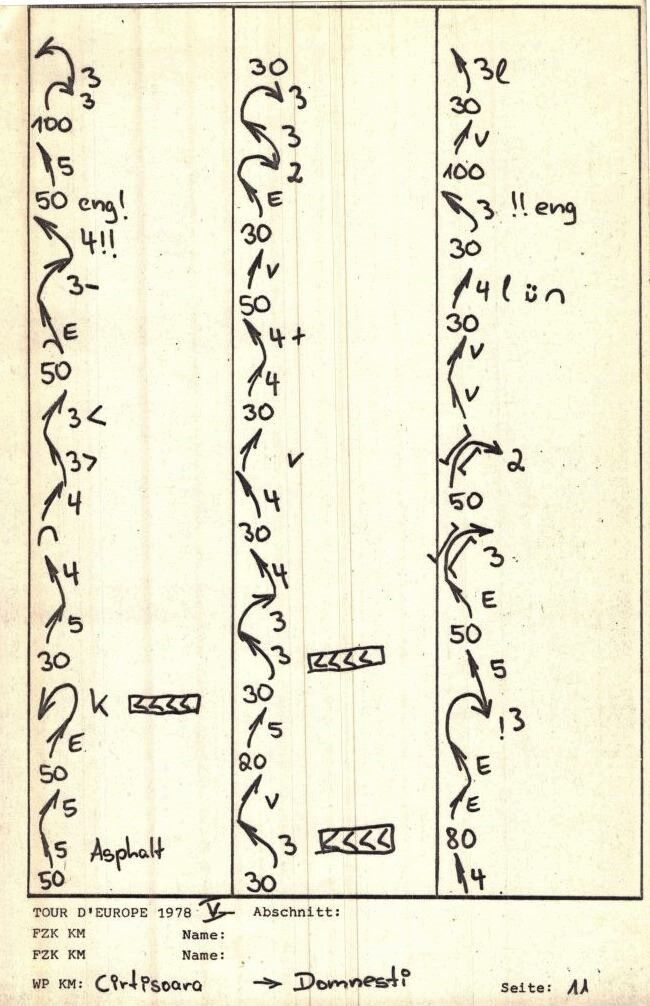 3
3
100
5
50 eng!
4!!
3-
E
50
3<
3>
4
4
5
30
K
E
50
5
5 Asphalt
50
30
3
3
2
E
30
v
50
4+
4
30
v
4
30
4
3
3
30
5
20
v
3
30
3l
30
v
100
3 !! eng
30
4 l ün
30
v
v
2
50
3
E
50
5
!3
E
E
80
4
TOUR D'EUROPE 1978 V Abschnitt:
FZK KM Name:
FZK KM Name:
WP KM: Cirtisoara → Domnesti Seite: 11